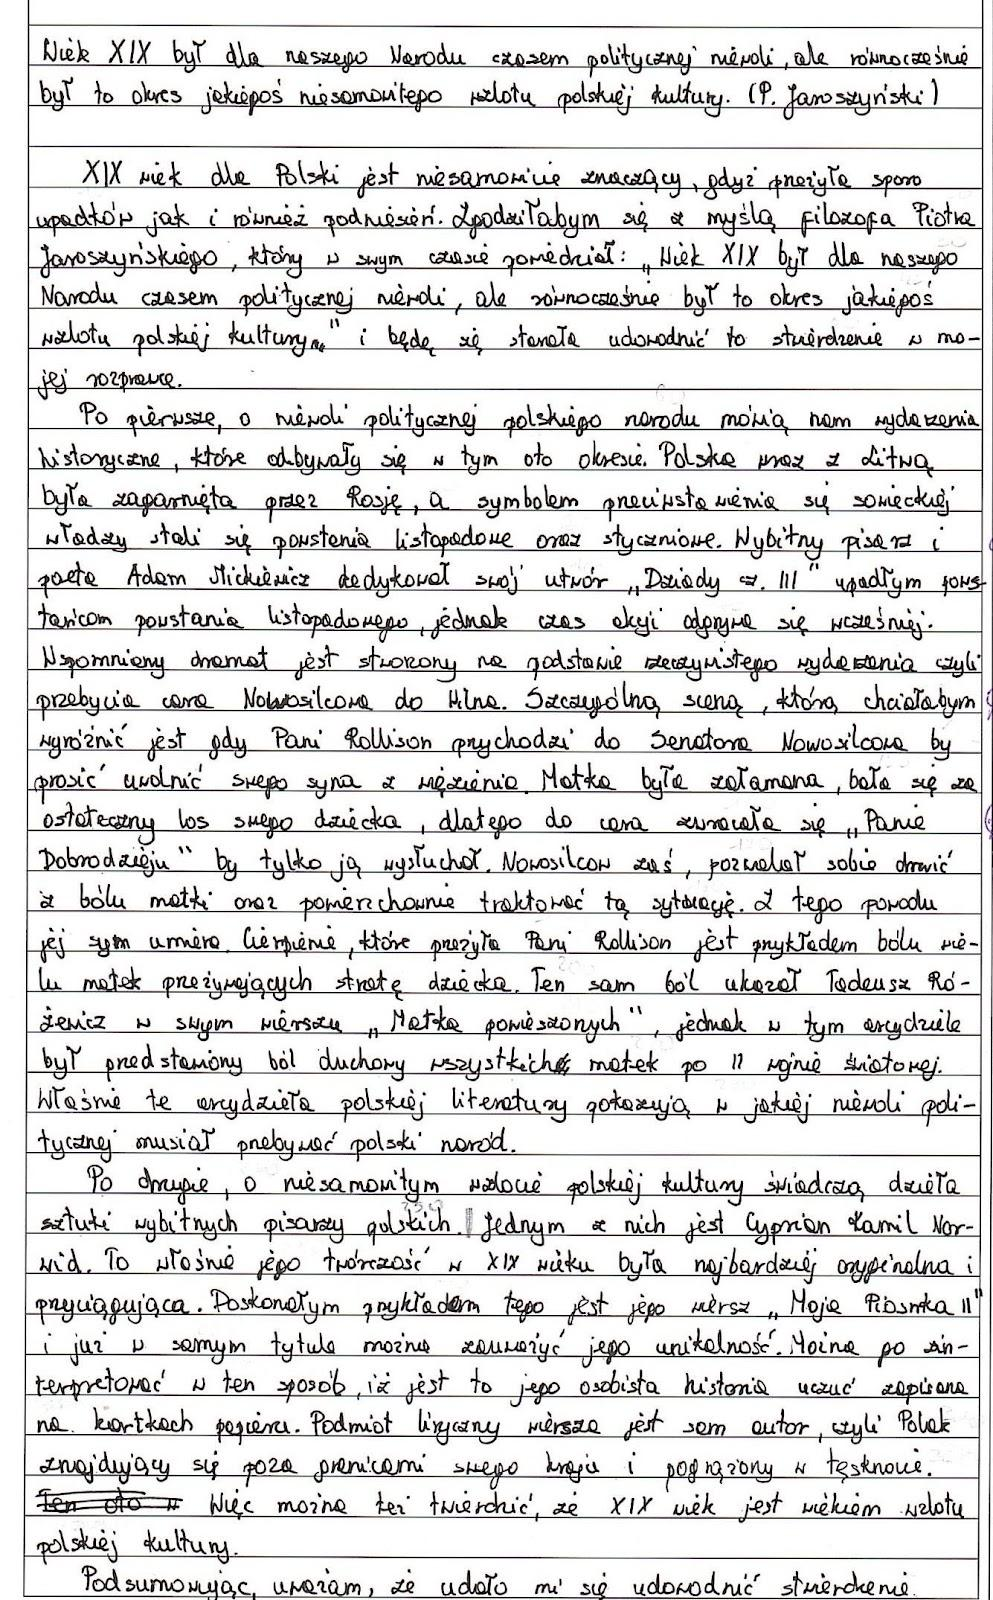 Wiek XIX był dla naszego Narodu czasem politycznej niewoli, ale równocześnie
był to okres jakiegoś niesamowitego wzlotu polskiej kultury. (P. Jaroszyński)
XIX wiek dla Polski jest niesamowicie znaczący, gdyż przeżyła sporo
upadków jak i również podniesień. Zgodziłabym się z myślą filozofa Piotra
Jaroszyńskiego, który w swym czasie powiedział: „Wiek XIX był dla naszego
Narodu czasem politycznej niewoli, ale równocześnie był to okres jakiegoś
wzlotu polskiej kultury..." i będę się starała udowodnić to stwierdzenie w mo-
jej rozprawce.
Po pierwsze, o niewoli politycznej polskiego narodu mówią nam wydarzenia
historyczne, które odbywały się w tym oto okresie. Polska wraz z Litwą
była zagarnięta przez Rosję, a symbolem przeciwstawienia się sowieckiej
władzy stali się powstania listopadowe oraz styczniowe. Wybitny pisarz i
poeta Adam Mickiewicz dedykował swój utwór „Dziady cz. III" upadłym pows-
tańcom powstania listopadowego, jednak czas akcji odgrywa się wcześniej.
Wspomniany dramat jest stworzony na podstawie rzeczywistego wydarzenia czyli
przebycia cara Nowosilcowa do Wilna. Szczególną sceną, którą chciałabym
wyróżnić jest gdy Pani Rollison przychodzi do Senatora Nowosilcowa by
prosić uwolnić swego syna z więzienia. Matka była załamana, bała się za
ostateczny los swego dziecka, dlatego do cara zwracała się „Panie
Dobrodzieju" by tylko ją wysłuchał. Nowosilcow zaś, pozwalał sobie drwić
z bólu matki oraz powierzchownie traktować tą sytuację. Z tego powodu
jej syn umiera. Cierpienie, które przeżyła Pani Rollison jest przykładem bólu wie-
lu matek przeżywających stratę dziecka. Ten sam ból ukazał Tadeusz Ró-
żewicz w swym wierszu „Matka powieszonych", jednak w tym arcydziele
był przedstawiony ból duchowy wszystkich matek po II wojnie światowej.
Właśnie te arcydzieła polskiej literatury pokazują w jakiej niewoli poli-
tycznej musiał przebywać polski naród.
Po drugie, o niesamowitym wzlocie polskiej kultury świadczą dzieła
sztuki wybitnych pisarzy polskich. Jednym z nich jest Cyprian Kamil Nor-
wid. To właśnie jego twórczość w XIX wieku była najbardziej oryginalna i
przyciągująca. Doskonałym przykładem tego jest jego wiersz „Moja Piosnka II"
i już w samym tytule można zauważyć jego unikalność. Można po zin-
terpretować w ten sposób, iż jest to jego osobista historia uczuć zapisana
na kartkach papieru. Podmiot liryczny wiersza jest sam autor, czyli Polak
znajdujący się poza granicami swego kraju i pogrążony w tęsknocie.
Ten oto w Więc można też twierdzić, że XIX wiek jest wiekiem wzlotu
polskiej kultury.
Podsumowując, uważam, że udało mi się udowodnić stwierdzenie.